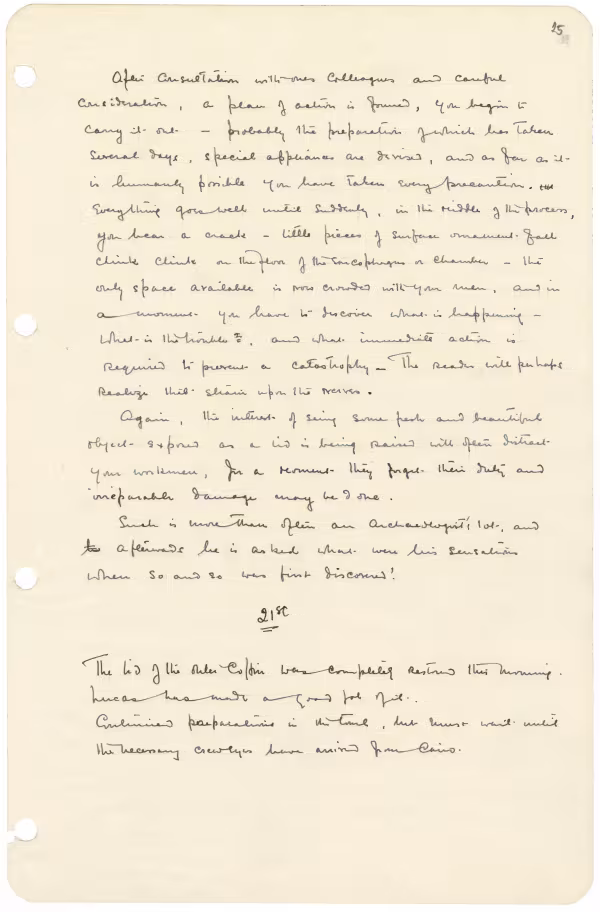 25
After consultation with ones colleagues and careful
consideration, a plan of action is formed, you begin to
carry it out — probably the preparation of which has taken
several days, special appliances are devised, and as far as it
is humanly possible you have taken every precaution.
Everything goes well until suddenly, in the middle of the process,
you hear a crack – little pieces of surface ornament fall
clink clink on the floor of the sarcophagus or chamber – the
only space available is now crowded with your men, and in
a moment you have to discover what is happening –
What is the trouble?, and what immediate action is
required to prevent a catastrophy – The reader will perhaps
realize that strain upon the nerves.
Again, the interest of seing some fresh and beautiful
object exposed as a lid is being raised will often distract
your workmen, for a moment they forget their duty and
irreparable damage may be done.
Such is more than often an Archaeologist's lot, and
afterwards he is asked what were his sensations
when so and so was first discovered!
21st
The lid of the outer Coffin was completely restored this morning.
Lucas has made a good job of it.
Continued preparations in the tomb, but must wait until
the necessary screweyes have arrived from Cairo.